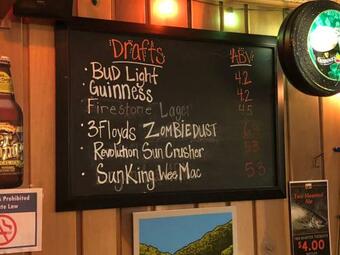 Drafts ABV
• Bud Light 4.2
• Guinness 4.2
Firestone Lager 4.5
• 3Floyds ZOMBIEDUST
• Revolution Sun Crusher 5.3
• SunKing Wee Mac 5.3
Prohibited
te Law
$4.00